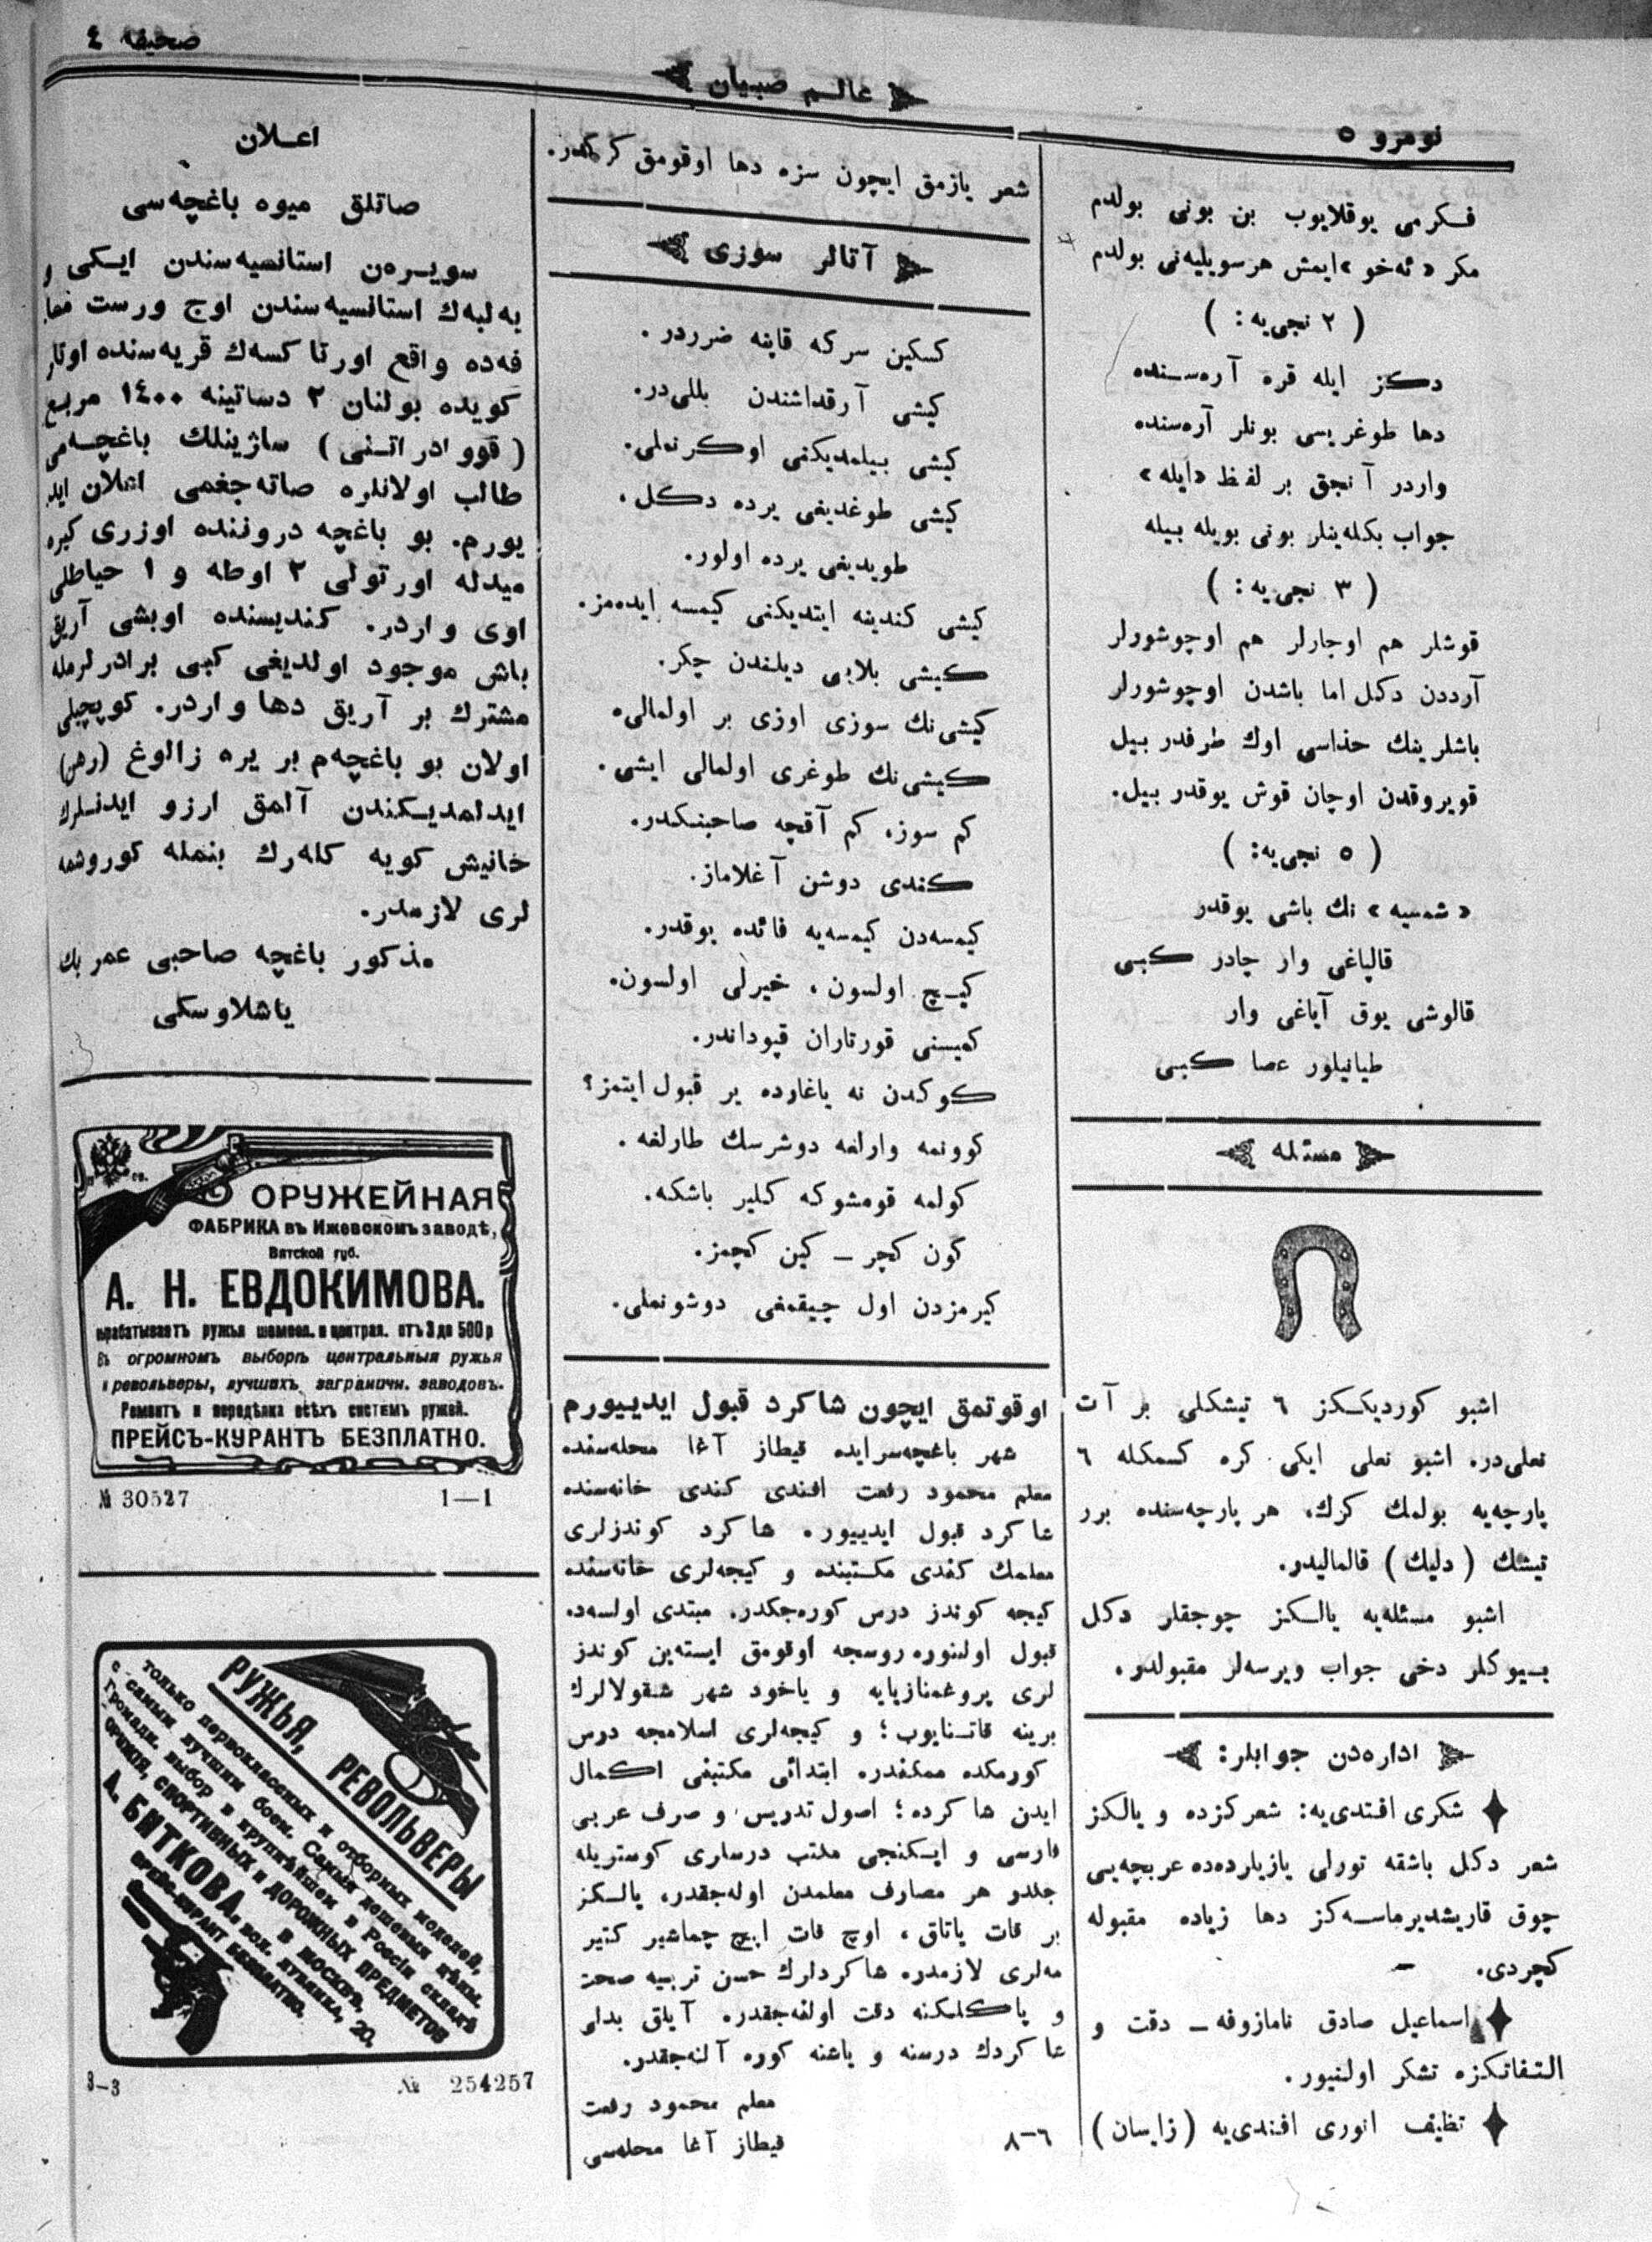 صحيفه ٤
عالم صبيان
نومرو ٥
فكرمی يوقلايوب بن بونی بولدم
مكر «ئەخو» ايمش هر سويليەنی بولدم
( ٢ نجی‌يه: )
دكز ايله قره آرەسنده
دها طوغريسی بونلر آرەسنده
واردر آنجق بر لفظ «ايله»
جواب بكلەينلر بونی بويله بيله
( ٣ نجی‌يه: )
قوشلر هم اوجارلر هم اوچوشورلر
آرددن دكل اما باشدن اوچوشورلر
باشلرينك حذاسی اوك طرفدر بيل
قويروقدن اوچان قوش يوقدر بيل.
( ٥ نجی‌يه: )
«شمسيه» نك باشی يوقدر
قالپاغی وار چادر كبی
قالوشی يوق آياغی وار
طيانيلور عصا كبی
مسئله
اشبو كورديككز ٦ تيشكلی بر آت
نعلی‌در. اشبو نعلی ايكی كره كسمكله ٦
پارچەيه بولمك كرك. هر پارچەسنده برر
تيشك ( دليك ) قالماليدر.
اشبو مسئلەيه يالكز چوجقلر دكل
بيوكلر دخی جواب ويرسەلر مقبولدر.
ادارەدن جوابلر:
شكری افندی‌يه: شعركزده و يالكز
شعر دكل باشقه تورلی يازيلردەده عربچەيی
چوق قاريشديرماسەكز دها زياده مقبوله
كچردی.
اسماعيل صادق نامازوفه — دقت و
التفاتكزه تشكر اولنيور.
نظيف انوری افندی‌يه (زايسان)
شعر يازمق ايچون سزه دها اوقومق كركدر.
آتالر سوزی
كسكين سركه قابنه ضرردر.
كيشی آرقداشندن بللی‌در.
كيشی بيلمديكنی اوكرنملی.
كيشی طوغديغی يرده دكل،
طويديغی يرده اولور.
كيشی كندينه ايتديكنی كيمسه ايدەمز.
كيشی بلايی ديلندن چكر.
كيشی‌نك سوزی اوزی بر اولمالی.
كيشی‌نك طوغری اولمالی ايشی.
كم سوز، كم آقچه صاحبنكدر.
كندی دوشن آغلاماز.
كيمسەدن كيمسەيه فائده يوقدر.
كيچ اولسون، خيرلی اولسون.
كميسنی قورتاران قپوداندر.
كوكدن نه ياغارده ير قبول ايتمز؟
كوونمه وارلغه دوشرسك طارلغه.
كولمه قومشوكه كلير باشكه.
كون كچر — كين كچمز.
كيرمزدن اول چيقمغی دوشونملی.
اوقوتمق ايچون شاكرد قبول ايدييورم
شهر باغچەسرايده قيطاز آغا محلەسنده
معلم محمود رفعت افندی كندی خانەسنده
شاكرد قبول ايدييور. شاكرد كوندزلری
معلمك كندی مكتبنده و كيجەلری خانەسنده
كيجه كوندز درس كورەجكدر. مبتدی اولسەده
قبول اولنور. روسجه اوقومق ايستەين كوندز
لری پروغمنازيايه و ياخود شهر شقولالرك
برينه قاتنايوب؛ و كيجەلری اسلامجه درس
كورمكده ممكندر. ابتدائی مكتبنی اكمال
ايدن شاكرده؛ اصول تدريس و صرف عربی
فارسی و ايكنجی مكتب درسلری كوستريله
جكدر هر مصارف معلمدن اولەجقدر. يالكز
بر قات ياتاق، اوچ قات ايچ چماشير كتير
مەلری لازمدر. شاكردلرك حسن تربيه صحت
و پاكلكنه دقت اولنەجقدر. آيلق بدلی
شاكردك درسنه و ياشنه كوره آلنەجقدر.
معلم محمود رفعت
قيطاز آغا محلەسی
٦–٨
اعلان
صاتلق ميوه باغچەسی
سويرەن استانسيەسندن ايكی و
بەلبەك استانسيەسندن اوچ ورست
فەده واقع اورتا كسەك قريەسنده اوتار
كويده بولنان ٢ دساتينه ١٤٠٠ مربع
( قوودراتنی ) ساژينلك باغچەمی
طالب اولانلره صاتەجغمی اعلان ايد
يورم. بو باغچه دروننده اوزری كيره
ميدله اورتولی ٢ اوطه و ١ حياطلی
اوی واردر. كنديسنده اوبشی آريق
باش موجود اولديغی كبی برادرلرمله
مشترك بر آريق دها واردر. كوپچيلی
اولان بو باغچەم بر يره زالوغ (رهن)
ايدلمديكندن آلمق ارزو ايدنلرك
خانيش كويه كلەرك بنمله كوروشمه
لری لازمدر.
مذكور باغچه صاحبی عمر بك
ياشلاوسكی
ОРУЖЕЙНАЯ
ФАБРИКА въ Ижевскомъ заводѣ,
Вятской губ.
А. Н. ЕВДОКИМОВА.
вырабатываетъ ружья шомпол. и централ. отъ 3 до 500 р
Въ огромномъ выборѣ центральныя ружья
и револьверы, лучшихъ заграничн. заводовъ.
Ремонтъ и передѣлка всѣхъ системъ ружей.
ПРЕЙСЪ-КУРАНТЪ БЕЗПЛАТНО.
№ 30527 1—1
РУЖЬЯ, РЕВОЛЬВЕРЫ
только первоклассныхъ и отборныхъ моделей,
с самым лучшим боем. Самыя дешевыя цѣны.
Громадн. выбор в крупнѣйшем в Россіи складѣ
ОРУЖІЯ, СПОРТИВНЫХ и ДОРОЖНЫХ ПРЕДМЕТОВ
А. БИТКОВА, в МОСКВѢ,
Бол. Лубянка, 20.
ПРЕЙС-КУРАНТ БЕЗПЛАТНО.
3–3 № 254257